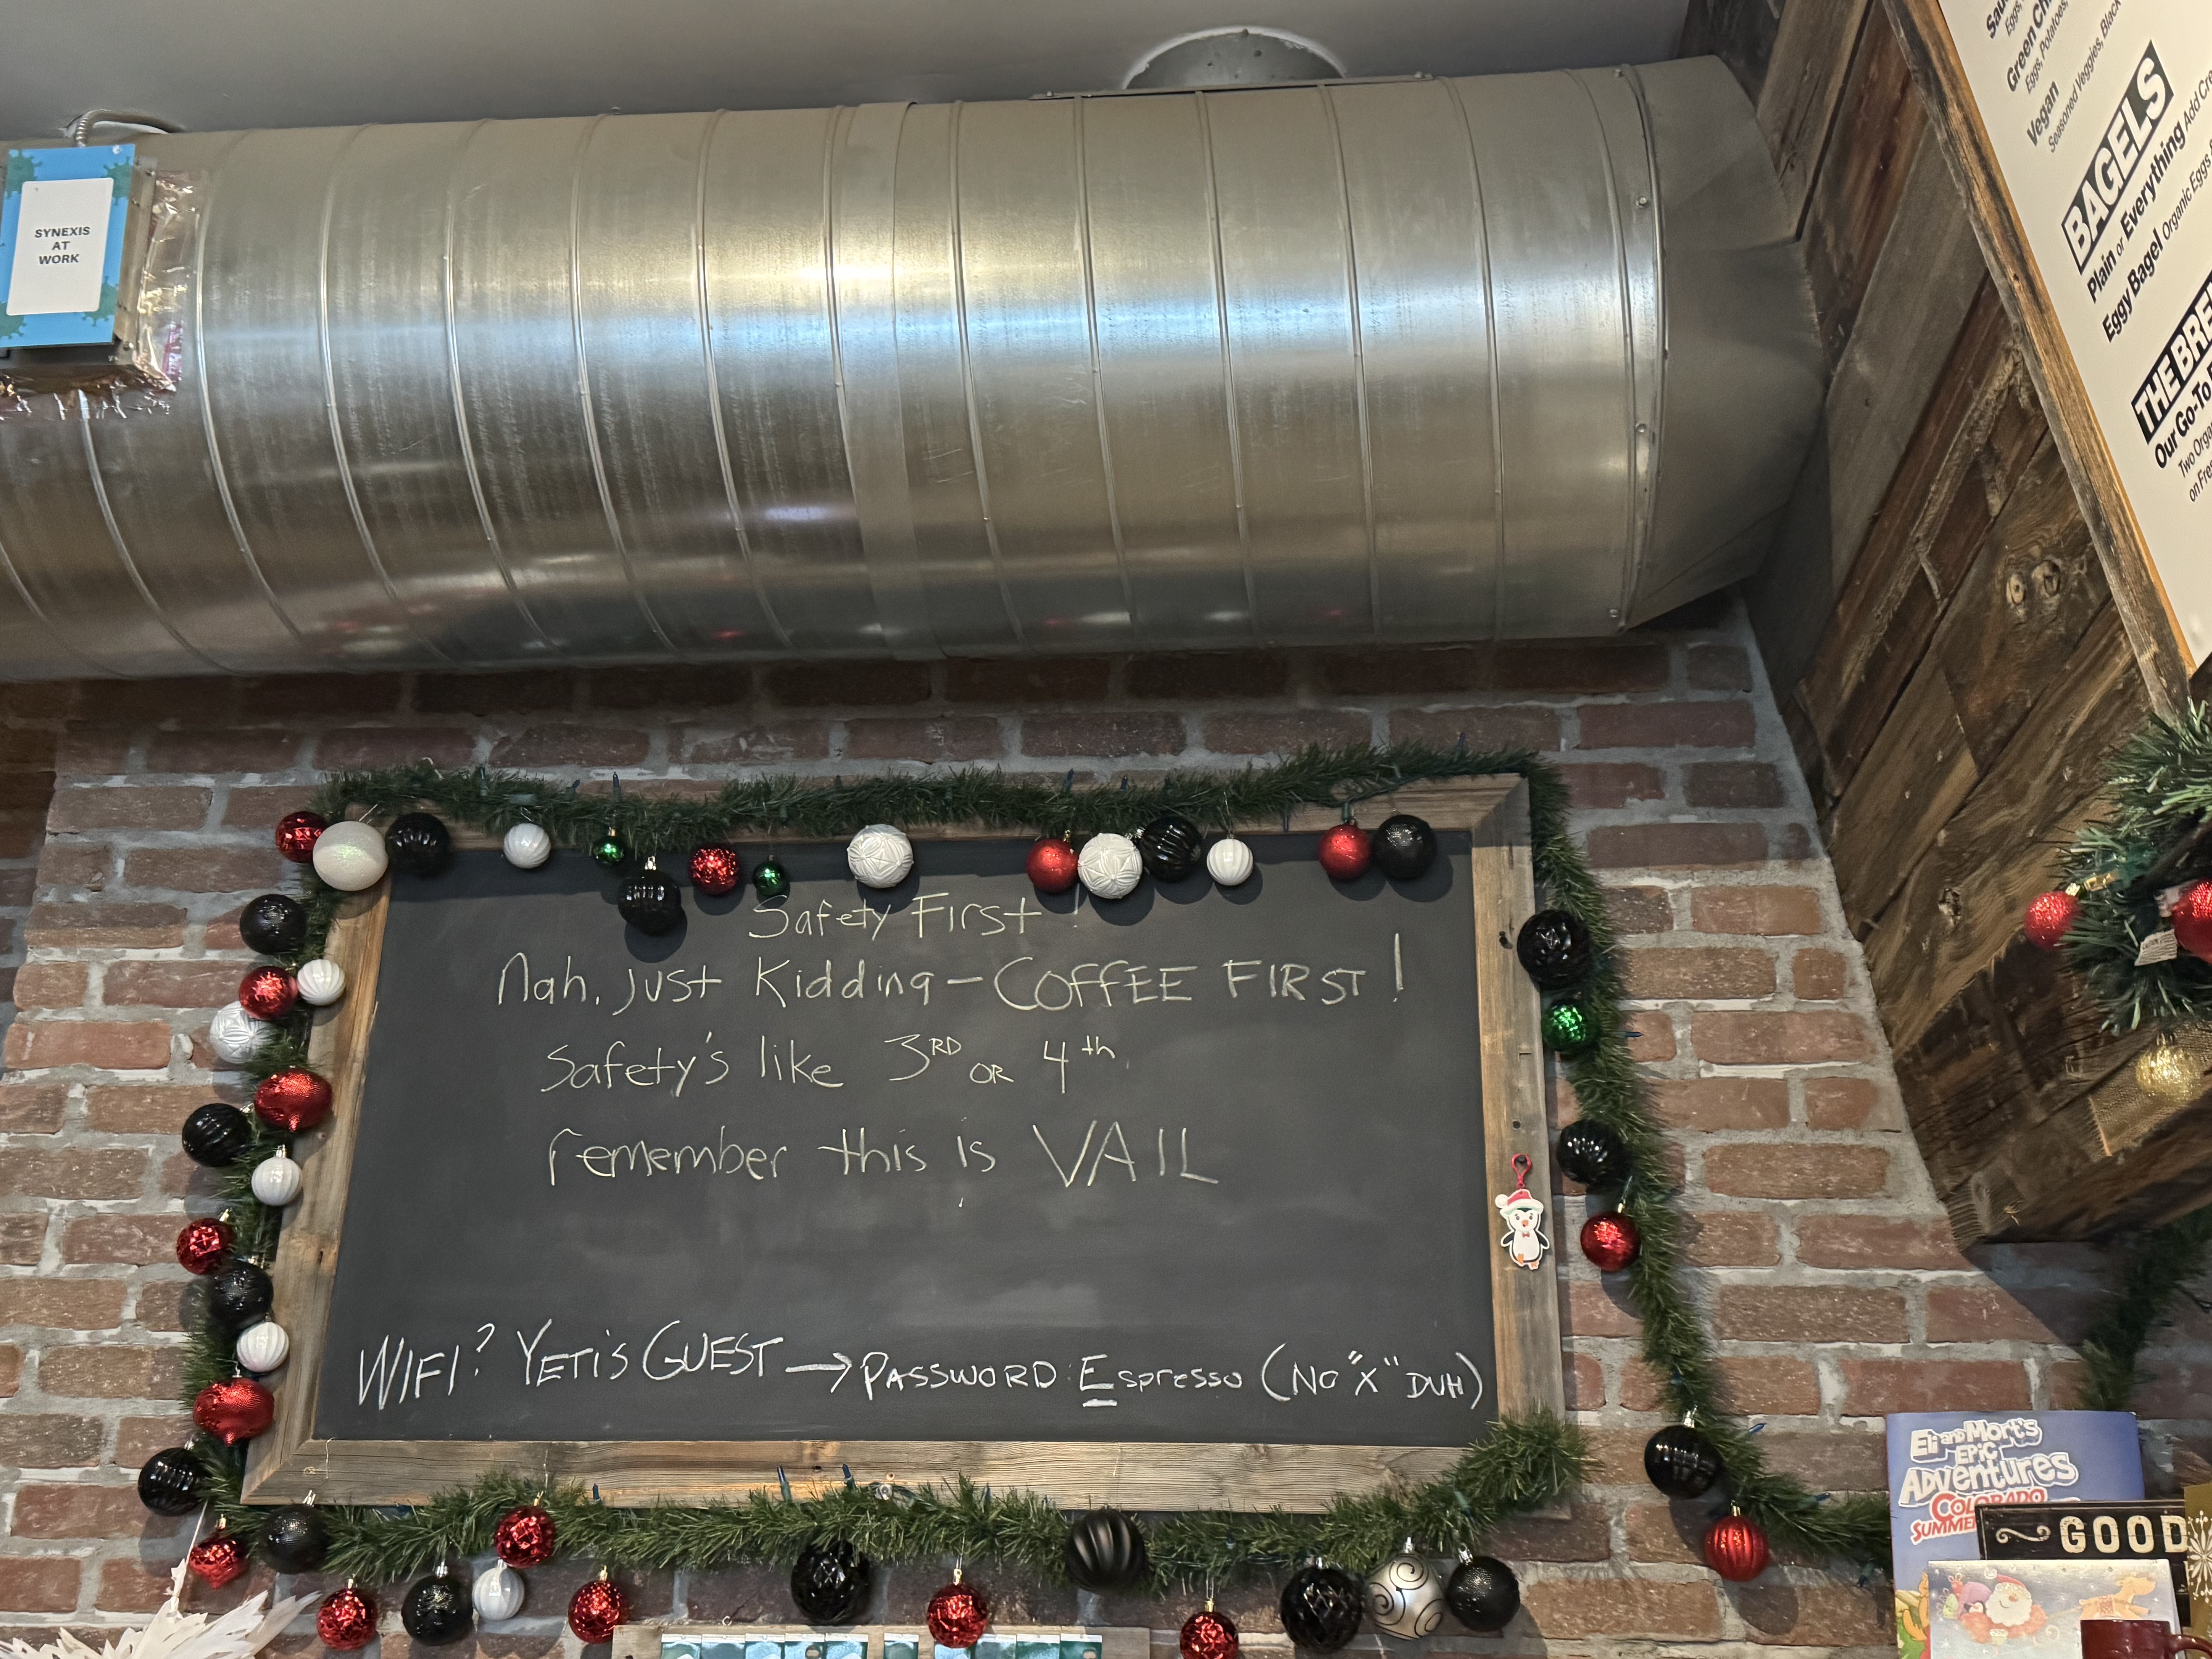 SYNEXIS
AT
WORK
Green
Eggs, Potatoes,
Vegan
Seasoned Veggies, Black
BAGELS
Plain or Everything Add
Eggy Bagel Organic Eggs
THE
Our Go-To
Two
on
Safety First !
Nah, Just Kidding - COFFEE FIRST !
Safety's like 3RD OR 4th
remember this is VAIL
WIFI? YETI'S GUEST → PASSWORD: Espresso (NO "X" DUH)
Eli and Mort's
EPIC
ADVENTURES
COLORADO
GOOD